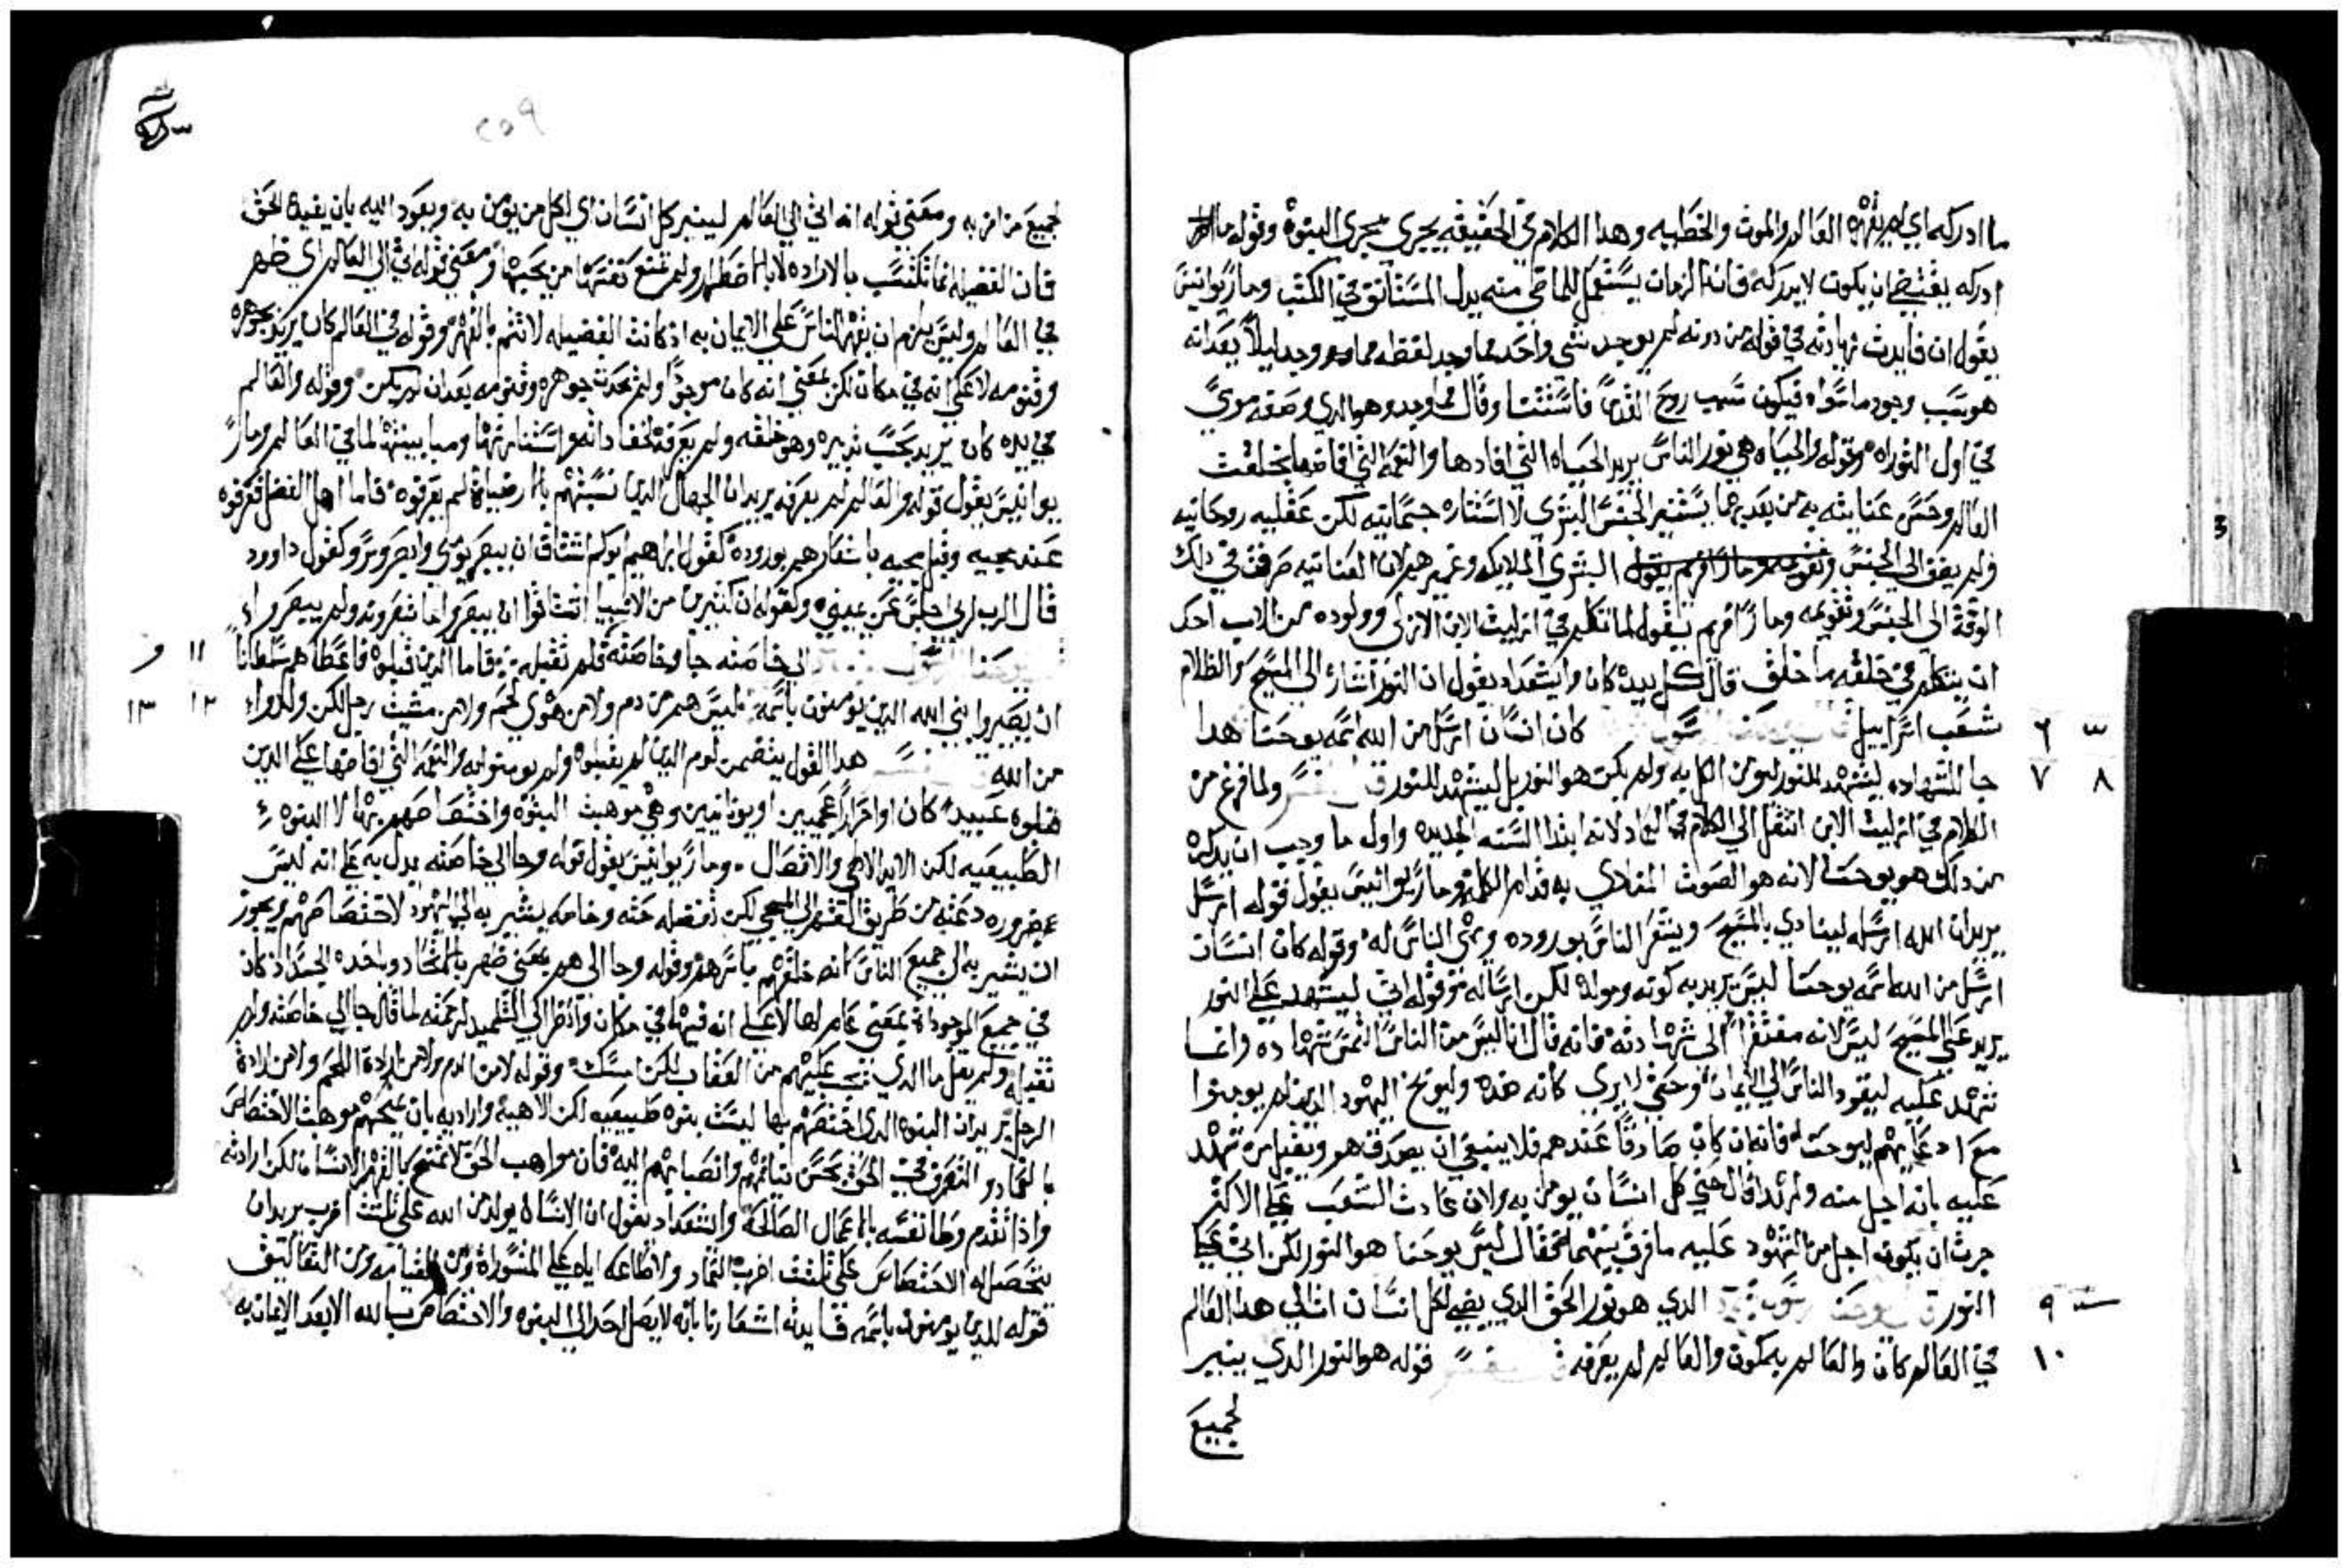 ما ادركه اي لم يقهره العالم والموت والخطيه وهدا الكلام في الحقيقه يجري مجري البنوة وقوله ما
ادركه يقتضي ان يكون لا يدركه فانما الزمان يستعمل الماضي منه بدل المستانف في الكتب ومار يوانيس
يقول ان فايدت في قوله من دونه لم يوجد شي واحد مما وجد لفظه مما وجد ليلا بعد انه
هو سبب وجود ما سواه فيكون سبب روح القدس فاستثنا وقال مما وجد وهو الدي وصفه موسي
في اول التوراه وقوله والحياه هي نور الناس يريد الحياه التي افادها والنعمه التي افاضها بخلقت
العالم وحسن عنايته به من بعد بهما يستنير الجنس البشري لا استناره جسمانيه لكن عقليه روحانيه
ولم يضف الي الجنس البشري الملايكه وغيرهم لان العنايه صرفت في دلك
الوقت الي الجنس وتقويمه ومار افريم يقول لما تكلم في ازليت الابن الازلي وولوده من الاب احد
ان يتكلم في خلقه ما خلق قال كل بيده كان وايشعداد يقول ان النور اشاره الي المسيح والظلام
شعب اسراييل كان انسان ارسل من الله اسمه يوحنا هدا ٦
جا للشهاده ليشهد للنور ليومن الكل به ولم يكن هو النور بل ليشهد للنور ولما فرغ من ٧ ٨
الكلام في ازليت الابن انتقل الي الكلام في لانه ابتدا السنه الجديده واول ما وجب ان يدكره
من دلك هو يوحنا لانه هو الصوت المنادي به قدام الكلمه ومار يوانيس يقول قوله ارسل
يريد ان الله ارسله لينادي بالمسيح ويشعر الناس بوروده الناس له وقوله كان انسان
ارسل من الله اسمه يوحنا ليس يريد به كونه ومولده لكن ارساله وقوله اتي ليشهد علي النور
يريد علي المسيح ليس لانه مفتقرا الي شهادته فانه قال انا ليس من الناس التمس شهاده وانما
شهد عليه ليقود الناس الي الايمان وحتي لا يري كانه ضده وليوبخ اليهود الدين لم يومنوا
مع ادعايهم ليوحنا فانه ان كان صادقا عندهم فلا ينبغي ان يصدق هو وتقبل من شهد
عليه بانه اجل منه ولم قال حتي كل انسان يومن به ولان عادت الشعب علي الاكثر
جرت ان يكون اجل من المشهود عليه ما فرق بينهما فقال ليس يوحنا هو النور لكن اتي
النور الدي هو نور الحق الدي يضي لكل انسان اتا الي هدا العالم ٩
في العالم كان والعالم به كون والعالم لم يعرفه قوله هو النور الدي ينير ١٠
لجميع
٢٥٩
لجميع من امن به ومعني قوله انه اتي الي العالم لينير كل انسان اي لكل من يومن به ويعود اليه بان يفيده الحق
فان الفضيله انما تكتسب بالاراده لا بالاضطرار ولم تمنع نعمتها من يحبها ومعني قوله اتي الي العالم اي ظهر
في العالم وليس يلزم ان يقهر الناس علي الايمان به اد كانت الفضيله لا تتم بالقهر وقوله في العالم كان يريد بجوهره
وقنومه لا علي انه في مكان لكن بمعني انه كان موجودا ولم يحدث جوهره وقنومه بعد ان لم يكن وقوله والعالم
في يده كان يريد بحسب تدبيره وهو خلقه ولم يعرفه لخفا داته واستتارتها ومباينتها لما في العالم ومار
يوانيس يقول قوله والعالم لم يعرفه يريد ان الجهال الدين نسبتهم لم يعرفوه فاما اهل الفضل فعرفوه
عند مجيه وقبل مجيه باشعارهم بوروده كقول ابراهيم ابوكم اشتاق ان يبصر يومي وابصر وسر وكقول داوود
قال الرب لربي اجلس عن يميني وكقوله ان كثيرين من الانبيا اشتاقوا ان يبصروا ما تنظرونه ولم يبصروا
الي خاصته جا وخاصته فلم تقبله فاما الدين قبلوه فاعطاهم سلطانا ١١ ١٢
ان يصيروا بني الله الدين يومنون باسمه ليس هم من دم ولا من هوي لحم ولا من مشيت رجل لكن ولدوا ١٣
من الله هدا القول يتضمن لوم الدين لم يقبلوه ولم يومنوا به والنعمه التي افاضها علي الدين
قبلوه عبيدا كان او احرارا عجميين او يونانيين وهي موهبت البنوه واختصاصهم بها لا البنوه
الطبيعيه لكن الاهي والاتصال ومار يوانيس يقول قوله وجا الي خاصته يدل به علي انه ليس
ضروره دعته من طريق القهر الي المجي لكن تفضله حثه وخاصه يشير به الي اليهود لاختصاصهم ويجوز
ان يشير به الي جميع الناس لانه خلقهم باسرهم وقوله وجا الي هم بمعني ظهر باتحاد وباخده الجسد اد كان
في جميع الموجودات بمعني عام لها لا علي انه فيها في مكان وانظر الي التلميد لرحمته لما قال جا الي خاصته ولم
تقبله ولم يقل ما الدي يجب عليهم من العقاب لكن امسك وقوله لا من الدم ولا من ارادة اللحم ولا من ارادة
الرجل يريد ان البنوه الدي اختصهم بها ليست بنوه طبيعيه لكن الاهية وارادته بان يمنحهم موهبت الاختصاص
بالعماد والتصرف في الحق بحسن نياتهم وانصبابهم اليه فان مواهب الحق لا تمنح بالقهر للانسان لكن ارادته
وادا تقدم وطا نفسه بالاعمال الصالحه وايشعداد يقول ان الانسان يولد من الله علي ثلثت اضرب يريد ان
يتحصل له الاختصاص علي ثلثت اضرب العماد ولاطاعه اياه علي المشورات ومن القيامه ومن
قوله للدين يومنون باسمه فايدته اشعارنا بانه لا يصل احد الي البنوه والاختصاص بالله الا بعد الايمان به